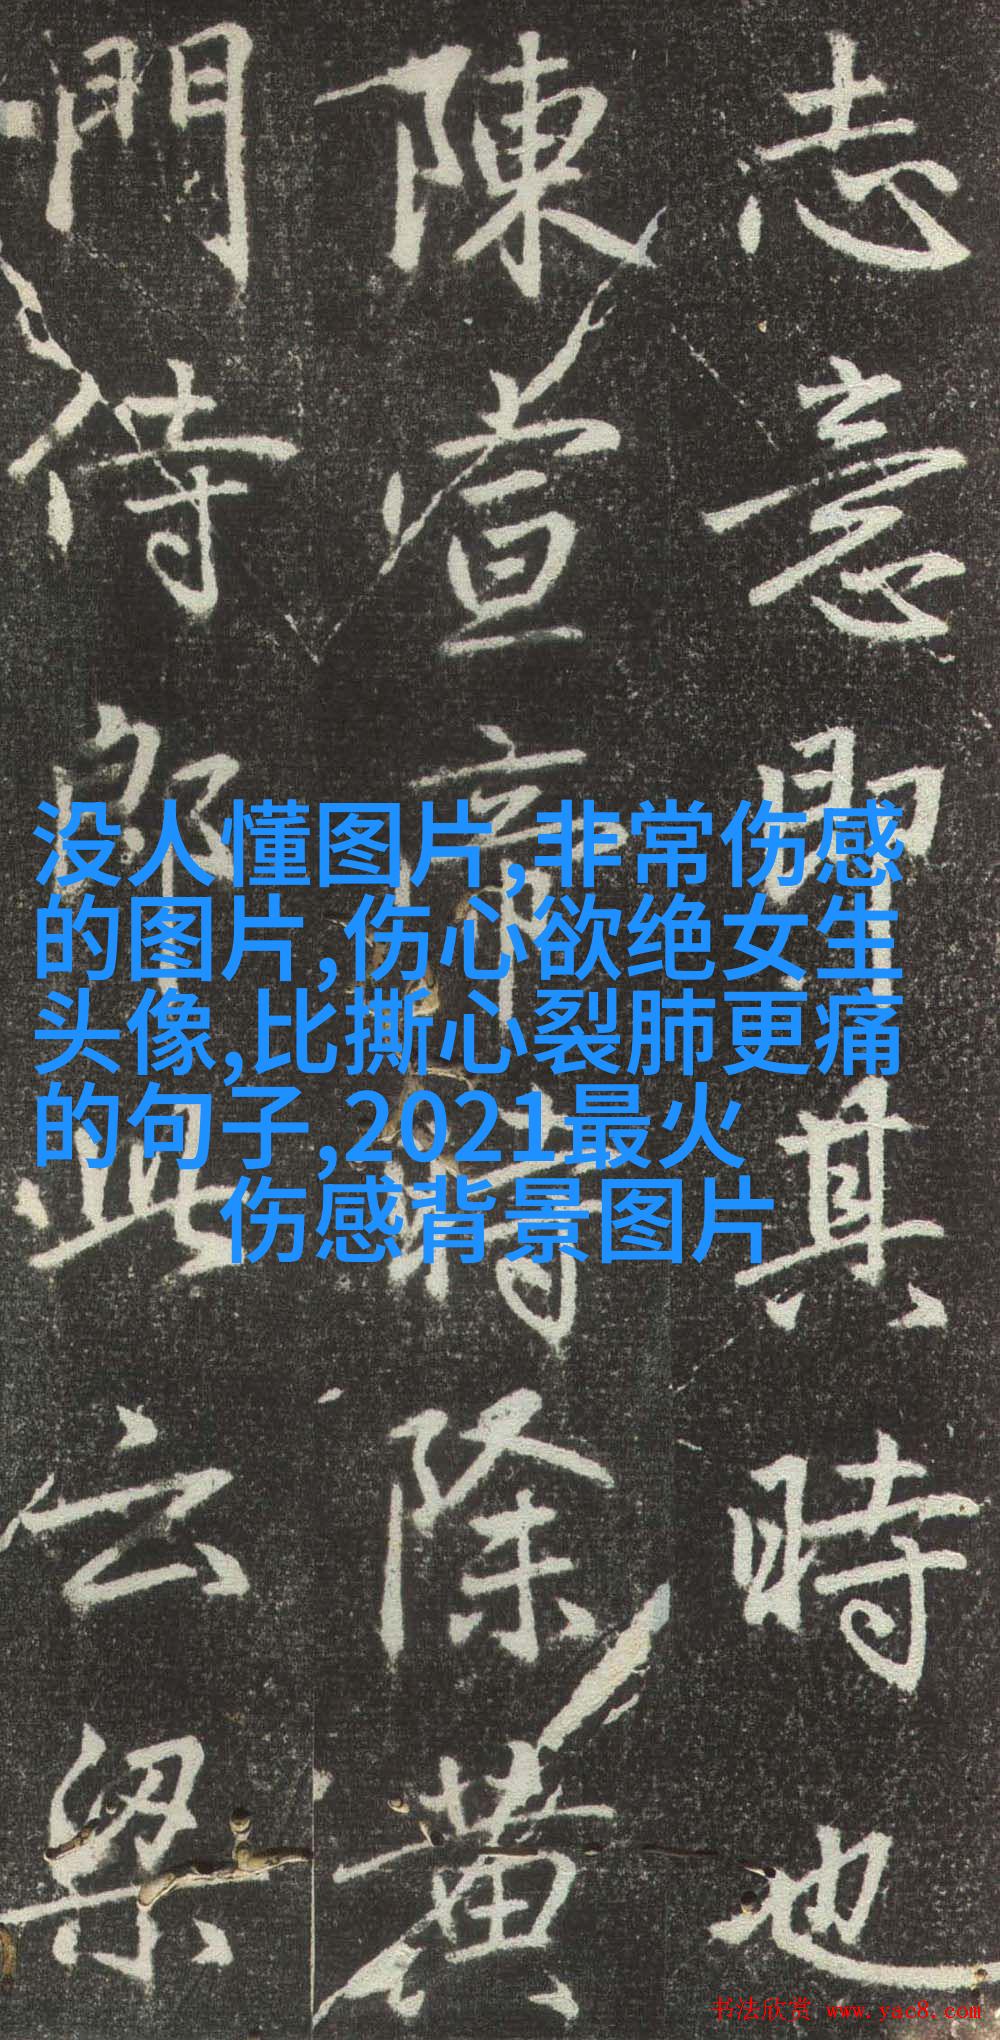 志意即其時也
陳宣帝時除黄
門侍郎此云梁
没人懂图片,非常伤感
的图片,伤心欲绝女生
头像,比撕心裂肺更痛
的句子,2021最火
伤感背景图片
书法欣赏 www.yac8.com